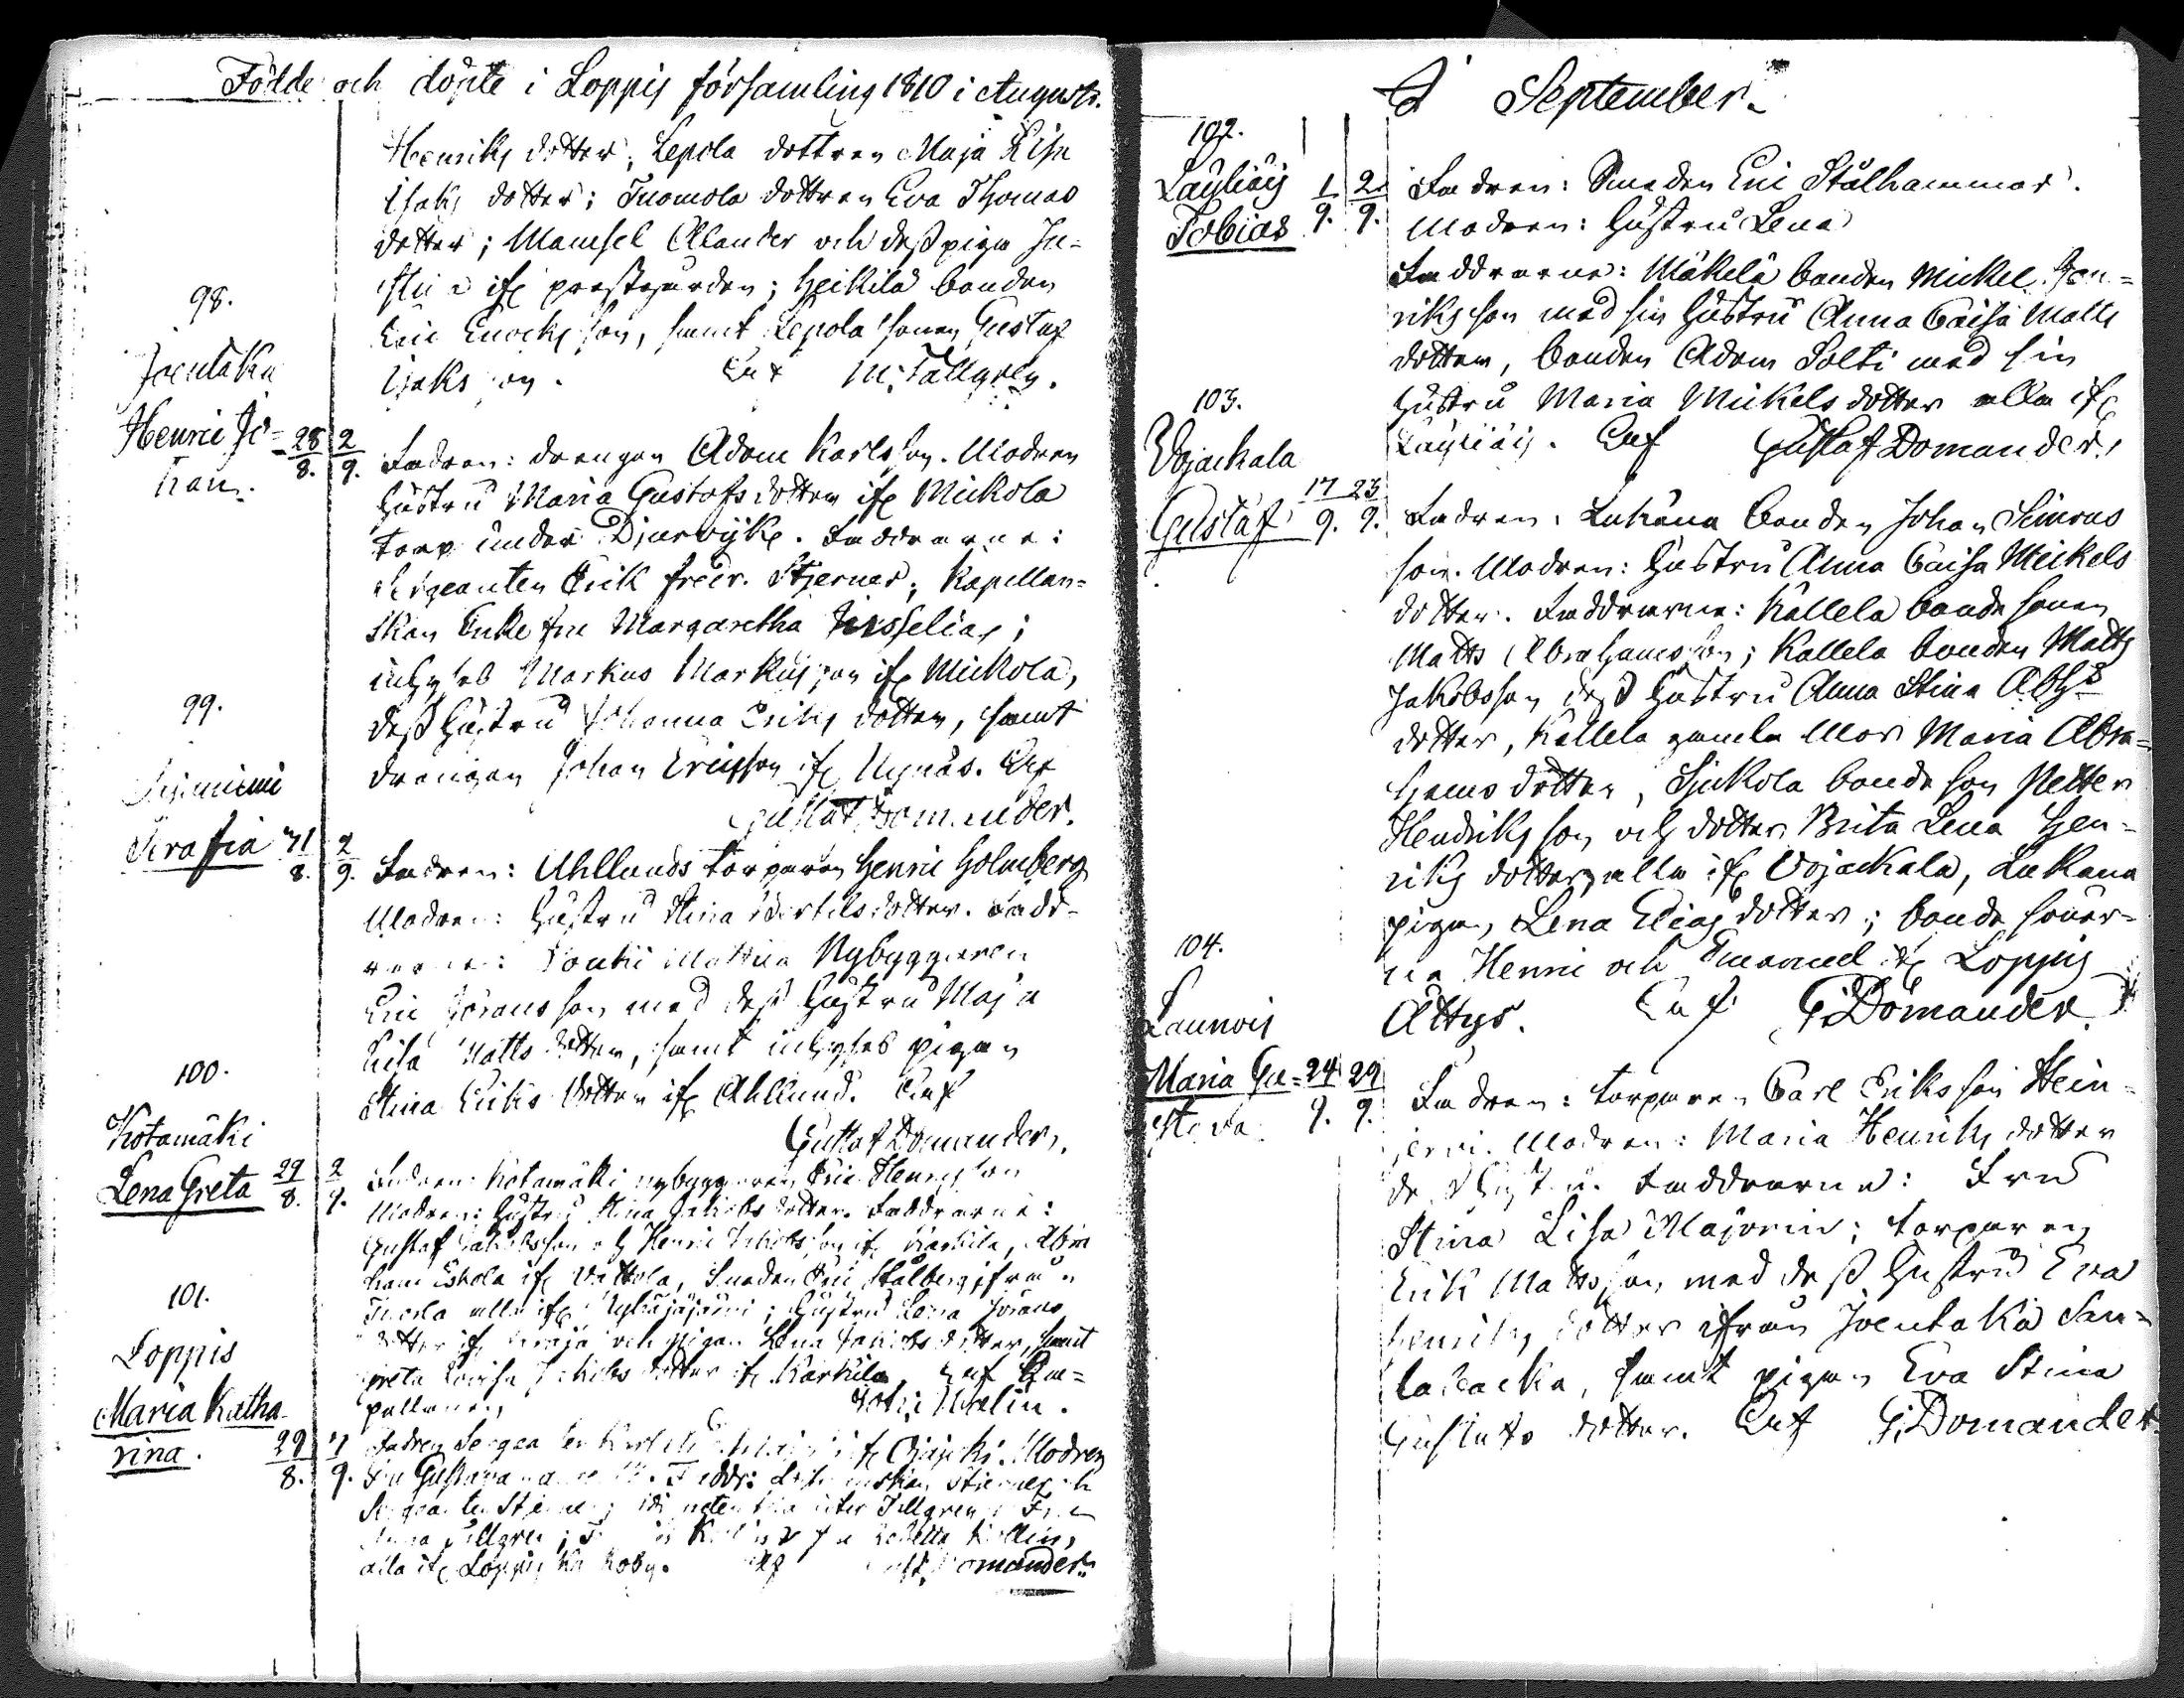 Födde och döpte i Loppis församling 1810 i Augusti.
Henriks dotter; Lepola dottren Maja Lisa
Isaks dotter; Tuomola dottren Eva Thomas
dotter; Mamsel Alander och dess piga Ju-
ifr prestgården; Heikilä bonden
Eric Enocks son, samt Lepola sonen Gustaf
Isaks son. M: Tallgren.
98.
Joentaka
Henric Jo-
han.
28/8. 2/9.
Fadren: drengen Adam Karlsson. Modren
Hustru Maria Gustafs dotter ifr Mickola
torp under Djurvijk. Faddrarne:
Sergeanten Erik Fredr. Stjerner; Kapellan-
skan Enke fru Margaretha
inhyses Markus Markusson ifr Mickola,
dess Hustru Johanna Eriks dotter, samt
drengen Johan Ericsson ifr Nynäs.
Gustaf Domander.
99.
Serafia
31/8. 2/9.
Fadren: Ahllunds torparen Henric Holmberg
Modren: Hustru Stina Bertils dotter. Fadd-
rarne: Nybyggaren
Eric Göransson med dess Hustru Maja
Lisa Matts dotter, samt inhyses pigan
Stina Eriks dotter ifr Ahllund.
Gustaf Domander.
100.
Kotamäki
Lena Greta
29/8. 2/9.
Fadren: Kotamäki nybyggaren Eric Henrisson
Modren: Hustru Stina Jakobs dotter. Faddrarne:
Gustaf Jakobsson och Henric Jakobsson ifr Karkila, Abra
ham Eskola ifr Vattola, Smeden Eric Stålberg ifrån
alla ifr; Hustru Lena Görans
dotter ifr och pigan Lena Jakobs dotter, samt
Greta Lovisa Jakobs dotter ifr Karkila. Ka-
pellanen,
101.
Loppis
Maria Katha-
rina.
29/8. 9.
Fadren Sergeanten Modren
Fru Gustava Faddr:
Sergeanten Tallgren
Tallgren;
alla ifr Loppis Kyrkoby. Domander
I September.
102.
Läyliäis
Tobias
1/9. 2/9.
Fadren: Smeden Eric Stålhammar.
Modren: Hustru Lena
Faddrarne: Mäkelä bonden Mickel Hen-
riksson med sin Hustru Anna Caisa Matts
dotter, bonden Adam Solti med sin
Hustru Maria Mickels dotter alla ifr
Läyliäis. Gustaf Domander.
103.
Vojackala
Gustaf
17/9. 23/9.
Fadren: Lukana bonden Johan Simons
son. Modren: Hustru Anna Caisa Mickels
dotter. Faddrarne: Kallela bonde sonen
Matts Abrahamsson; Kallela bonden Matts
Jakobsson dess Hustru Anna Stina Abhs
dotter, Kallela gamla Mor Maria Abra-
hams dotter, Sjukola bonde son Petter
Hendriks son och dotter Brita Lena Hen-
riks dotter, alla ifr Vojackala, Lukana
pigan, Lena Elias dotter; bonde söner-
na Henric och Emanuel ifr Loppis
Ättys. G: Domander
104.
Launois
Maria Gu-
stava
24/9. 29/9.
Fadren: torparen Carl Eriksson Hein-
jervi. Modren: Maria Henriks dotter
dess Hustru. Faddrarne: Fru
Stina Lisa Majorin; torparen
Erik Mattsson, med dess Hustru Eva
Henriks dotter ifrån Joentaka San-
tabacka, samt pigan Eva Stina
Gustafs dotter. G: Domander